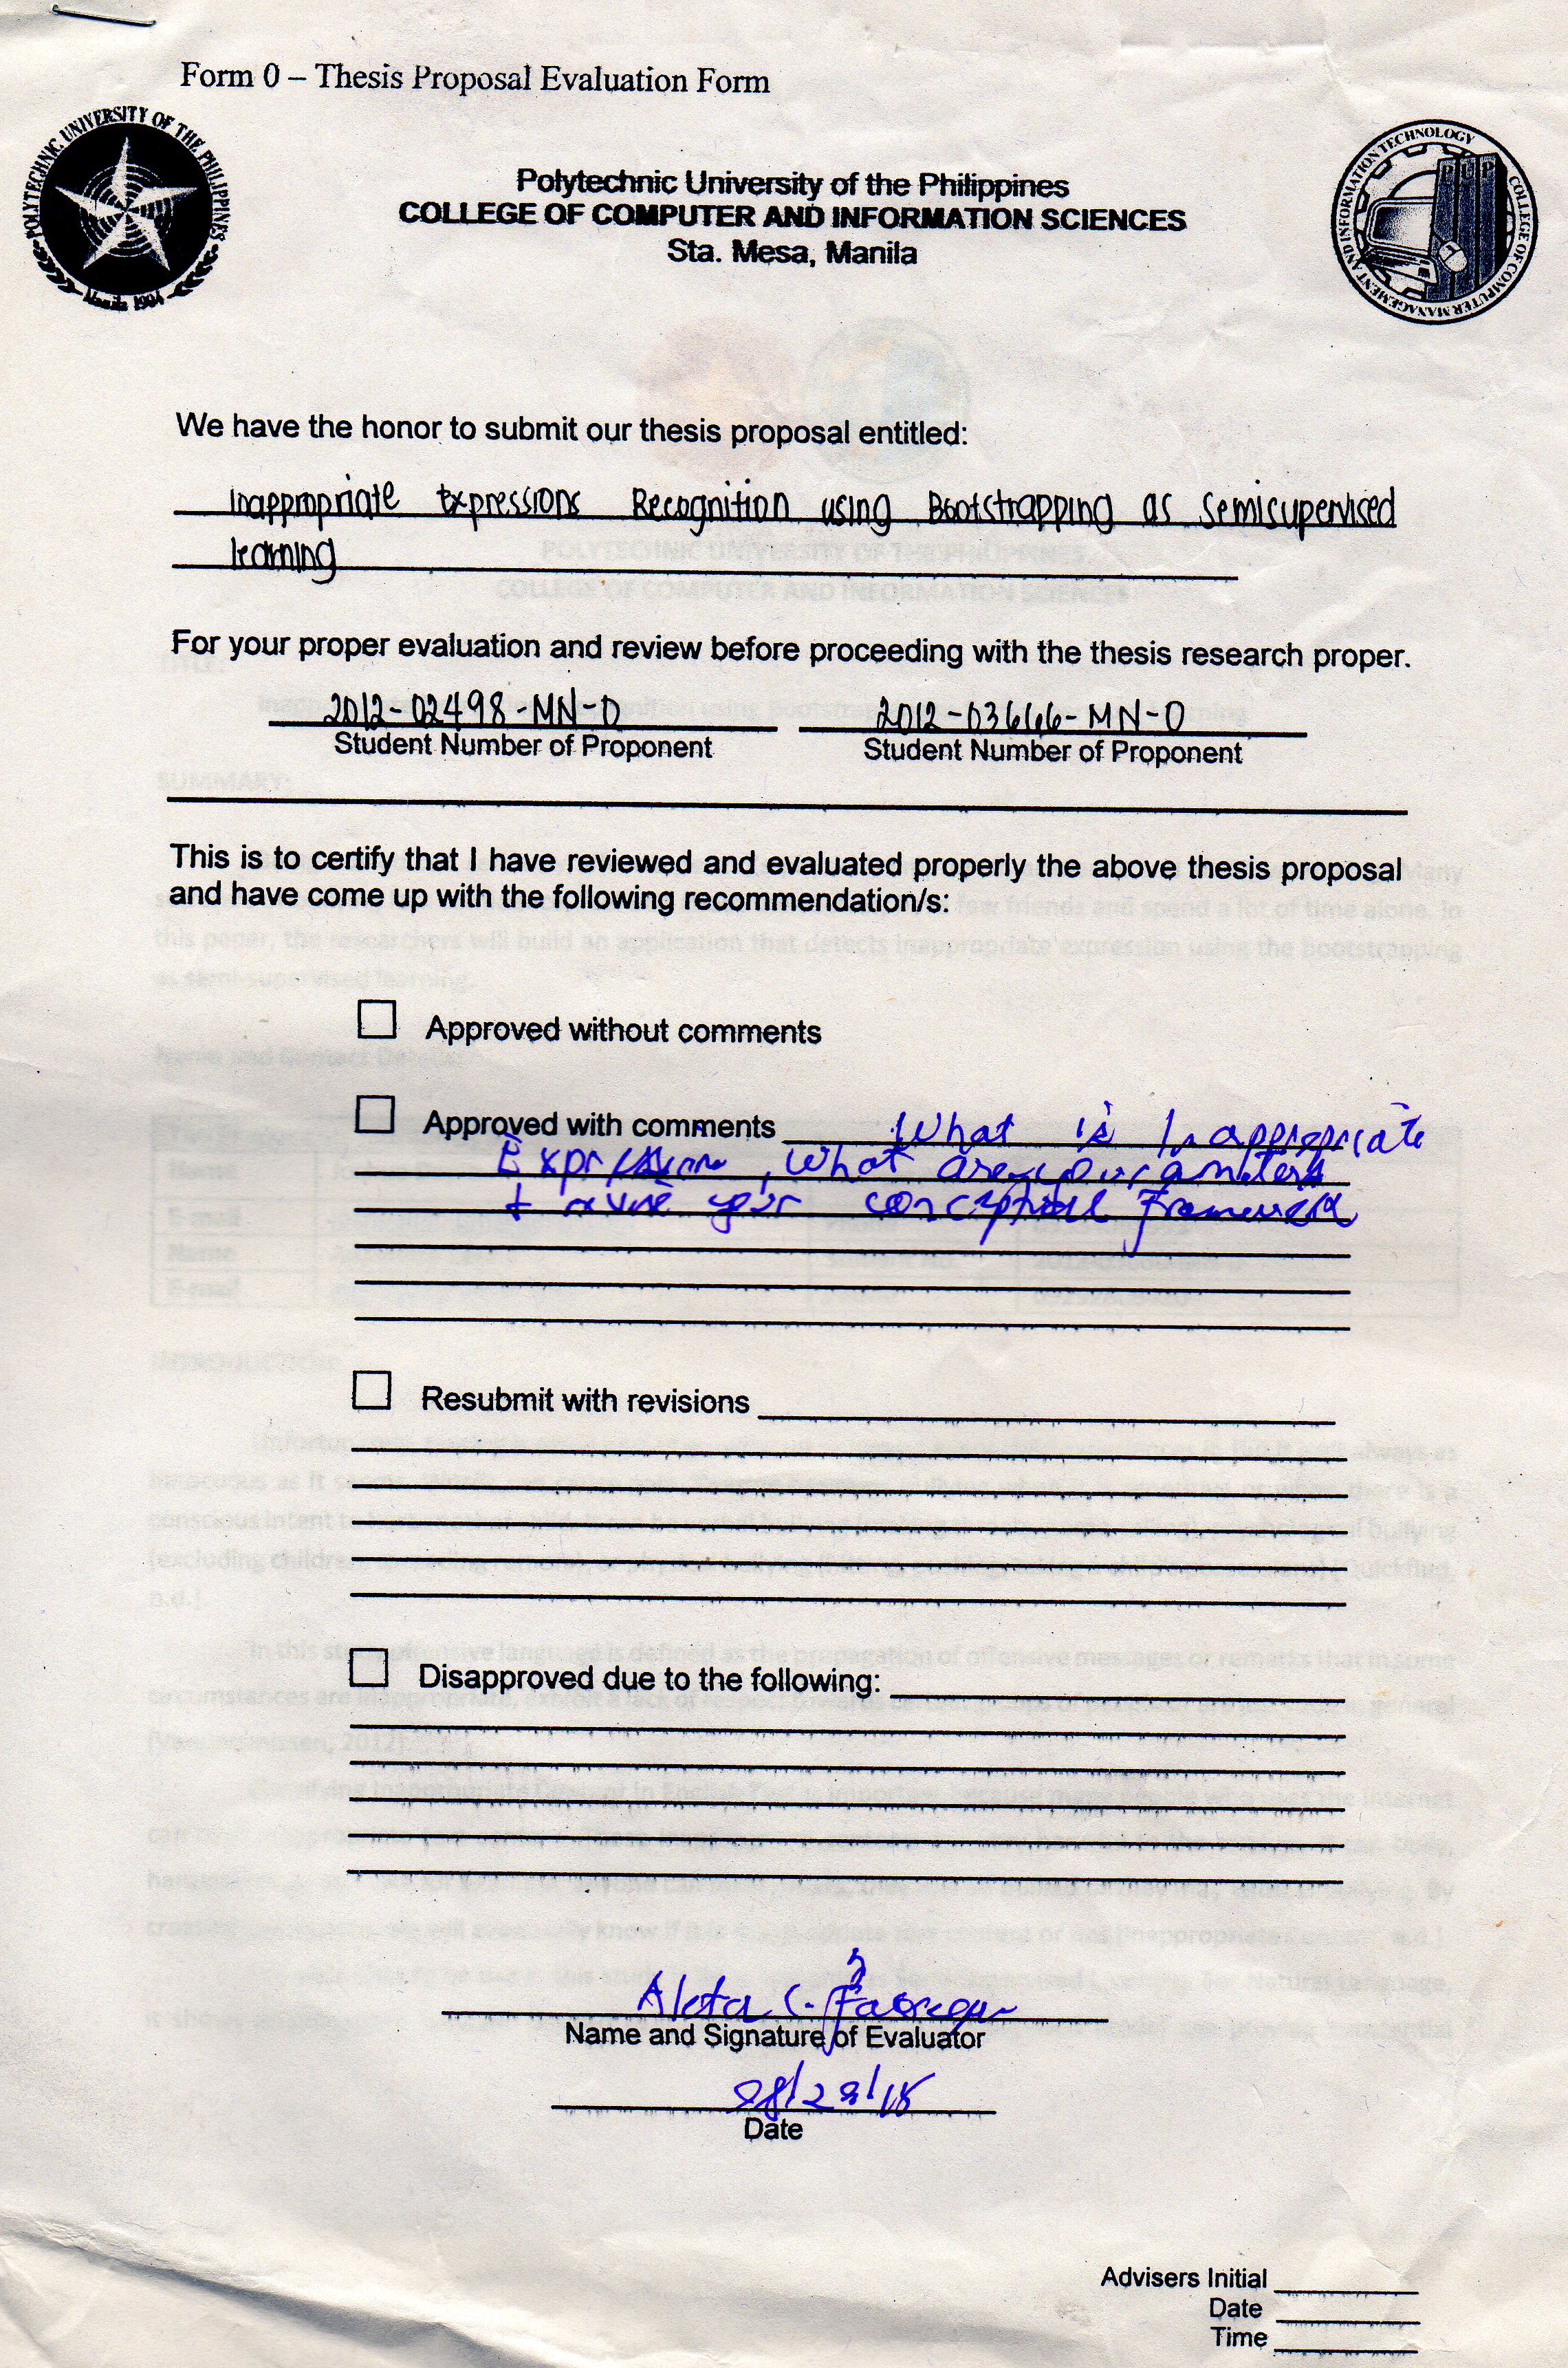 Form 0 – Thesis Proposal Evaluation Form
POLYTECHNIC UNIVERSITY OF THE PHILIPPINES
Manila 1904
COLLEGE OF COMPUTER MANAGEMENT AND INFORMATION TECHNOLOGY
PUP
Polytechnic University of the Philippines
COLLEGE OF COMPUTER AND INFORMATION SCIENCES
Sta. Mesa, Manila
We have the honor to submit our thesis proposal entitled:
Inappropriate Expressions Recognition using Bootstrapping as Semisupervised
learning
For your proper evaluation and review before proceeding with the thesis research proper.
2012-02498-MN-0 2012-03666-MN-0
Student Number of Proponent Student Number of Proponent
This is to certify that I have reviewed and evaluated properly the above thesis proposal
and have come up with the following recommendation/s:
Approved without comments
Approved with comments What is Inappropriate
Expression, What are parameters
+ revise your conceptual framework
Resubmit with revisions
Disapproved due to the following:
Aleta C.
Name and Signature of Evaluator
Date
Advisers Initial
Date
Time